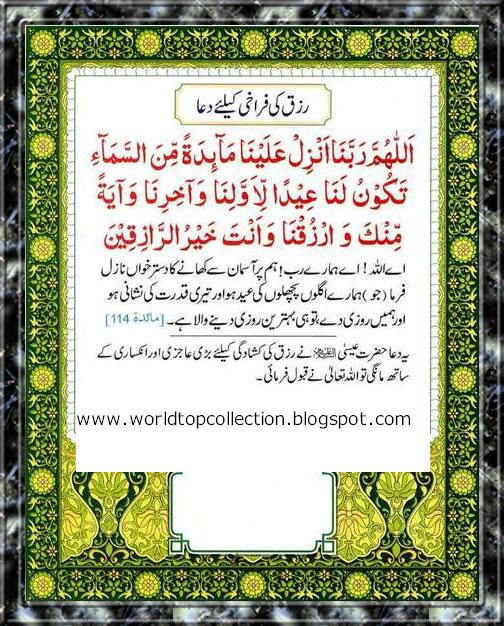 رزق کی فراخی کیلئے دعا
اَللّٰهُمَّ رَبَّنَا اَنْزِلْ عَلَيْنَا مَآئِدَةً مِّنَ السَّمَآءِ
تَكُوْنُ لَنَا عِيْدًا لِّاَوَّلِنَا وَآخِرِنَا وَآيَةً
مِّنْكَ وَ ارْزُقْنَا وَاَنْتَ خَيْرُ الرَّازِقِيْنَ
اے اللہ! اے ہمارے رب! ہم پر آسمان سے کھانے کا دسترخواں نازل
فرما (جو) ہمارے اگلوں پچھلوں کی عید ہو اور تیری قدرت کی نشانی ہو
اور ہمیں روزی دے، تو ہی بہترین روزی دینے والا ہے۔ [مائدۃ 114]
یہ دعا حضرت عیسیٰ علیہ السلام نے رزق کی کشادگی کیلئے بڑی عاجزی اور انکساری کے
ساتھ مانگی تو اللہ تعالیٰ نے قبول فرمائی۔
www.worldtopcollection.blogspot.com